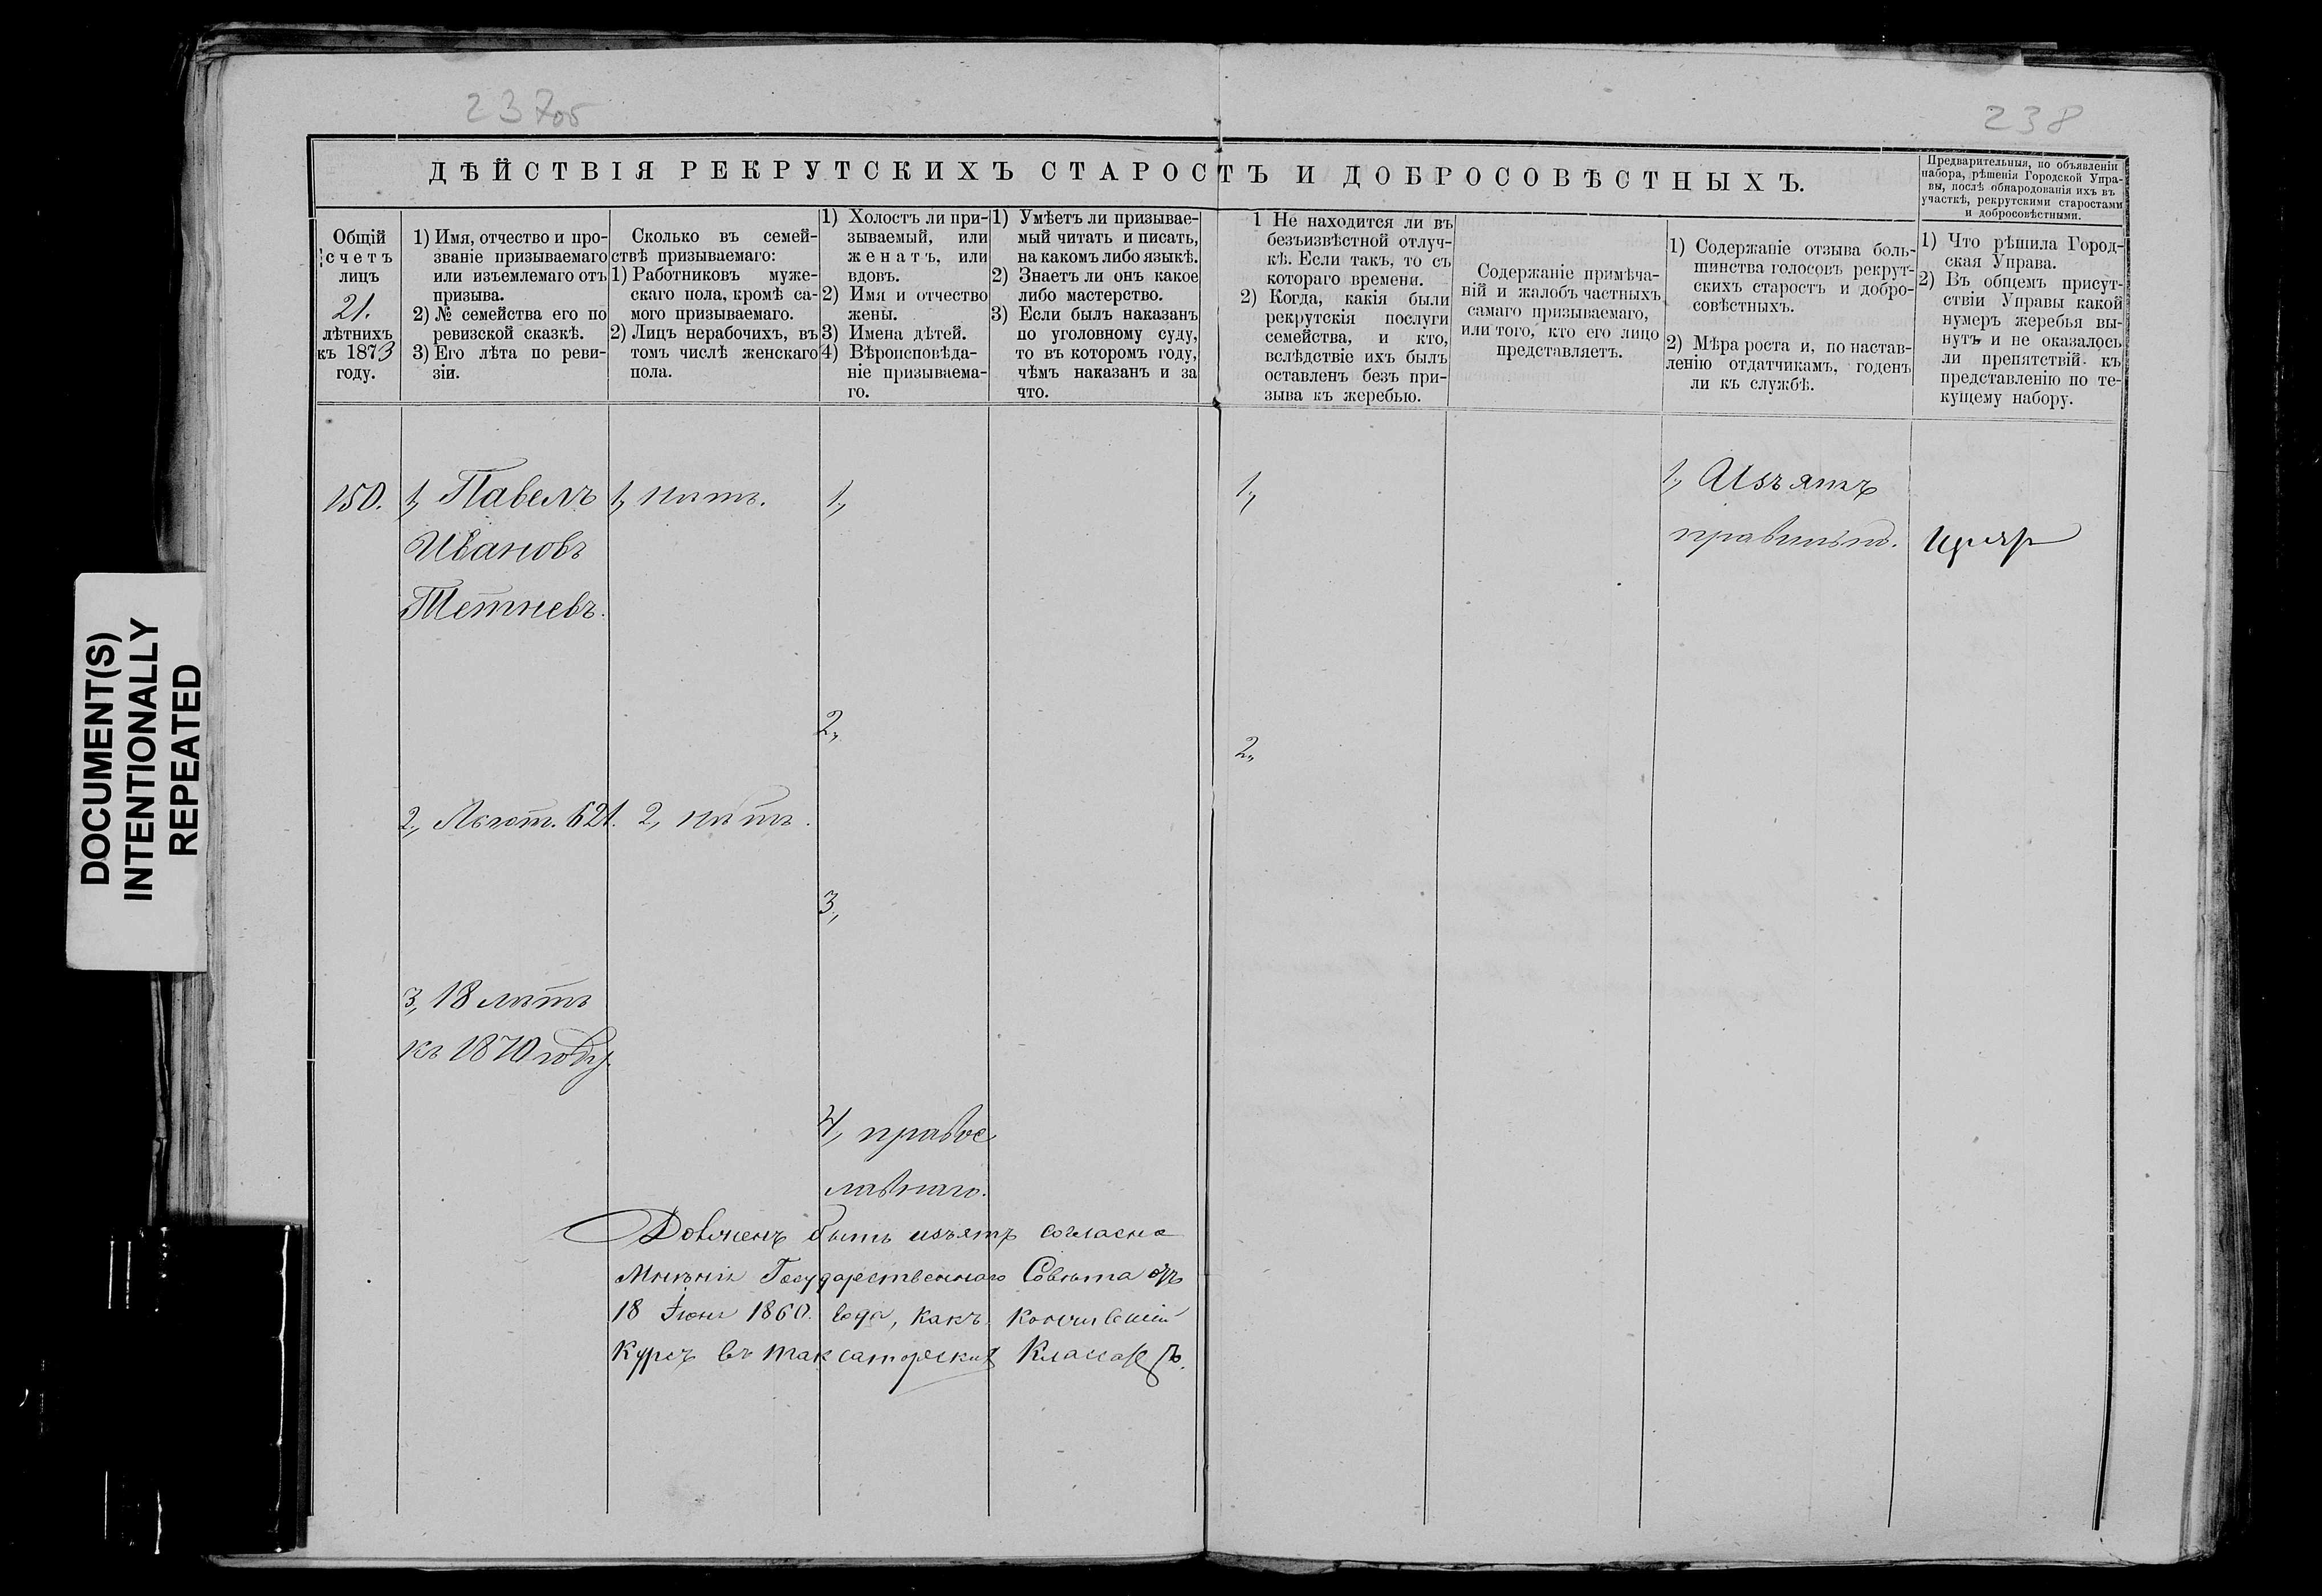 237об
238
ДѢЙСТВІЯ РЕКРУТСКИХЪ СТАРОСТЪ И ДОБРОСОВѢСТНЫХЪ.
Предварительныя, по объявленіи
набора, рѣшенія Городской Упра-
вы, послѣ обнародованія ихъ въ
участкѣ, рекрутскими старостами
и добросовѣстными.
Общій
счетъ
лицъ
21.
лѣтнихъ
къ 1873
году.
1) Имя, отчество и про-
званіе призываемаго
или изъемлемаго отъ
призыва.
2) № семейства его по
ревизской сказкѣ.
3) Его лѣта по реви-
зіи.
Сколько въ семей-
ствѣ призываемаго:
1) Работниковъ муже-
скаго пола, кромѣ са-
мого призываемаго.
2) Лицъ нерабочихъ, въ
томъ числѣ женскаго
пола.
1) Холостъ ли при-
зываемый, или
женатъ, или
вдовъ.
2) Имя и отчество
жены.
3) Имена дѣтей.
4) Вѣроисповѣда-
ніе призываема-
го.
1) Умѣетъ ли призывае-
мый читать и писать,
на какомъ либо языкѣ.
2) Знаетъ ли онъ какое
либо мастерство.
3) Если былъ наказанъ
по уголовному суду,
то въ которомъ году,
чѣмъ наказанъ и за
что.
1 Не находится ли въ
безъизвѣстной отлуч-
кѣ. Если такъ, то съ
котораго времени.
2) Когда, какія были
рекрутскія послуги
семейства, и кто,
вслѣдствіе ихъ былъ
оставленъ безъ при-
зыва къ жеребью.
Содержаніе примѣча-
ній и жалобъ частныхъ
самаго призываемаго,
или того, кто его лицо
представляетъ.
1) Содержаніе отзыва боль-
шинства голосовъ рекрут-
скихъ старостъ и добро-
совѣстныхъ.
2) Мѣра роста и, по настав-
ленію отдатчикамъ, годенъ
ли къ службѣ.
1) Что рѣшила Город-
ская Управа.
2) Въ общемъ присут-
ствіи Управы какой
нумеръ жеребья вы-
нутъ и не оказалось
ли препятствій къ
представленію по те-
кущему набору.
150.
1, Павелъ
Ивановъ
Тетневъ.
2, Льгот. 621.
3, 18 лѣтъ
къ 1870 году.
1, нѣтъ.
2, нѣтъ.
1,
2,
3,
4, правос
лавнаго.
Долженъ быть изъятъ согласно
Мнѣнія Государственнаго Совѣта отъ
18 Іюня 1860. года, какъ кончившій
Курсъ въ таксаторскихъ Классахъ.
1,
2,
1, Изъятъ
правильно.
DOCUMENT(S)
INTENTIONALLY
REPEATED